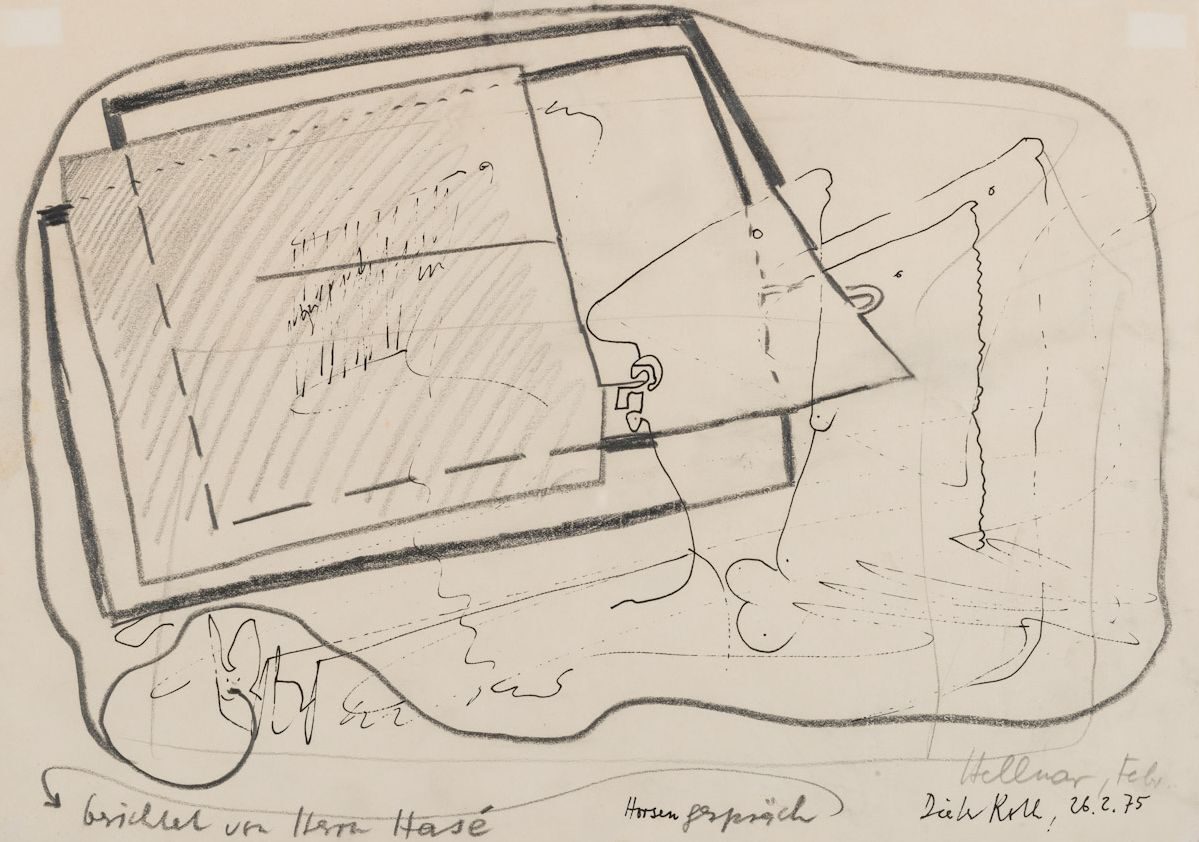 Hellnar, Febr.
berichtet von Herrn Hasé
Horsengespräch
Dieter Roth, 26.2.75